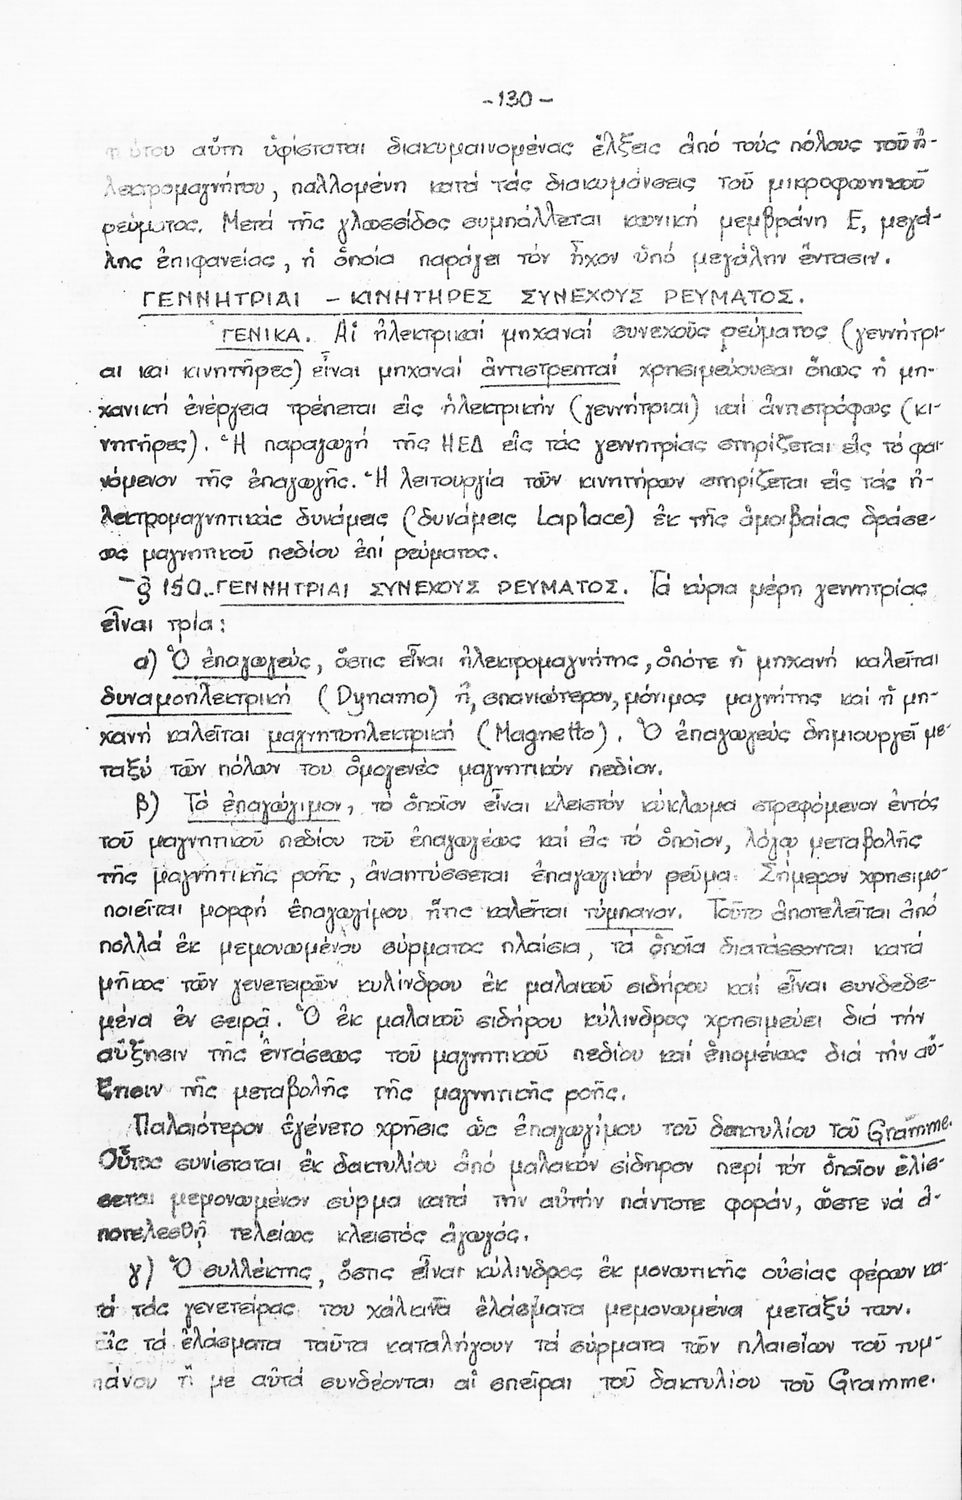 -130-
αὕτη ὑφίσταται διακυμαινομένας ἕλξεις ἀπό τούς πόλους τοῦ ἠ-
λεκτρομαγνήτου, παλλομένη κατά τάς διακυμάνσεις τοῦ μικροφωνικοῦ
ρεύματος. Μετά τῆς γλωσσίδος συμπάλλεται κωνική μεμβράνη Ε, μεγά-
λης ἐπιφανείας, ἡ ὁποία παράγει τόν ἦχον ὑπό μεγάλην ἔντασιν.
ΓΕΝΝΗΤΡΙΑΙ - ΚΙΝΗΤΗΡΕΣ ΣΥΝΕΧΟΥΣ ΡΕΥΜΑΤΟΣ.
ΓΕΝΙΚΑ. Αἱ ἠλεκτρικαί μηχαναί συνεχοῦς ρεύματος (γεννήτρι-
αι και κινητῆρες) εἶναι μηχαναί ἀντιστρεπταί χρησιμεύουσαι ὅπως ἡ μη-
χανική ἐνέργεια τρέπεται εἰς ἠλεκτρικήν (γεννήτριαι) καί ἀντιστρόφως (κι-
νητῆρες). Ἡ παραγωγή τῆς ΗΕΔ εἰς τάς γεννητρίας στηρίζεται εἰς τό φαι-
νόμενον τῆς ἐπαγωγῆς. Ἡ λειτουργία τῶν κινητήρων στηρίζεται εἰς τάς ἠ-
λεκτρομαγνητικάς δυνάμεις (δυνάμεις Laplace) ἐκ τῆς ἀμοιβαίας δράσε-
ως μαγνητικοῦ πεδίου ἐπί ρεύματος.
-§ 150.-ΓΕΝΝΗΤΡΙΑΙ ΣΥΝΕΧΟΥΣ ΡΕΥΜΑΤΟΣ. Τά κύρια μέρη γεννητρίας
εἶναι τρία:
α) Ὁ ἐπαγωγεύς, ὅστις εἶναι ἠλεκτρομαγνήτης, ὁπότε ἡ μηχανή καλεῖται
δυναμοηλεκτρική (Dynamo) ἤ, σπανιώτερον, μόνιμος μαγνήτης καί ἡ μη-
χανή καλεῖται μαγνητοηλεκτρική (Magnetto). Ὁ ἐπαγωγεύς δημιουργεῖ με-
ταξύ τῶν πόλων του ὁμογενές μαγνητικόν πεδίον.
β) Τό ἐπαγώγιμον, τό ὁποῖον εἶναι κλειστόν κύκλωμα στρεφόμενον ἐντός
τοῦ μαγνητικοῦ πεδίου τοῦ ἐπαγωγέως καί εἰς τό ὁποῖον, λόγω μεταβολῆς
τῆς μαγνητικῆς ροῆς, ἀναπτύσσεται ἐπαγωγικόν ρεῦμα. Σήμερον χρησιμο-
ποιεῖται μορφή ἐπαγωγίμου ἥτις καλεῖται τύμπανον. Τοῦτο ἀποτελεῖται ἀπό
πολλά ἐκ μεμονωμένου σύρματος πλαίσια, τά ὁποῖα διατάσσονται κατά
μῆκος τῶν γενετειρῶν κυλίνδρου ἐκ μαλακοῦ σιδήρου καί εἶναι συνδεδε-
μένα ἐν σειρᾷ. Ὁ ἐκ μαλακοῦ σιδήρου κύλινδρος χρησιμεύει διά τήν
αὔξησιν τῆς ἐντάσεως τοῦ μαγνητικοῦ πεδίου καί ἑπομένως διά τήν αὔ-
ξησιν τῆς μεταβολῆς τῆς μαγνητικῆς ροῆς.
Παλαιότερον ἐγένετο χρῆσις ὡς ἐπαγωγίμου τοῦ δακτυλίου τοῦ Gramme.
Οὗτος συνίσταται ἐκ δακτυλίου ἀπό μαλακόν σίδηρον περί τόν ὁποῖον ἑλίσ-
σεται μεμονωμένον σύρμα κατά τήν αὐτήν πάντοτε φοράν, ὥστε νά ἀ-
ποτελεσθῇ τελείως κλειστός ἀγωγός.
γ) Ὁ συλλέκτης, ὅστις εἶναι κύλινδρος ἐκ μονωτικῆς οὐσίας φέρων κα-
τά τάς γενετείρας του χάλκινα ἐλάσματα μεμονωμένα μεταξύ των.
Εἰς τά ἐλάσματα ταῦτα καταλήγουν τά σύρματα τῶν πλαισίων τοῦ τυμ-
πάνου ἤ με αὐτά συνδέονται αἱ σπεῖραι τοῦ δακτυλίου τοῦ Gramme.